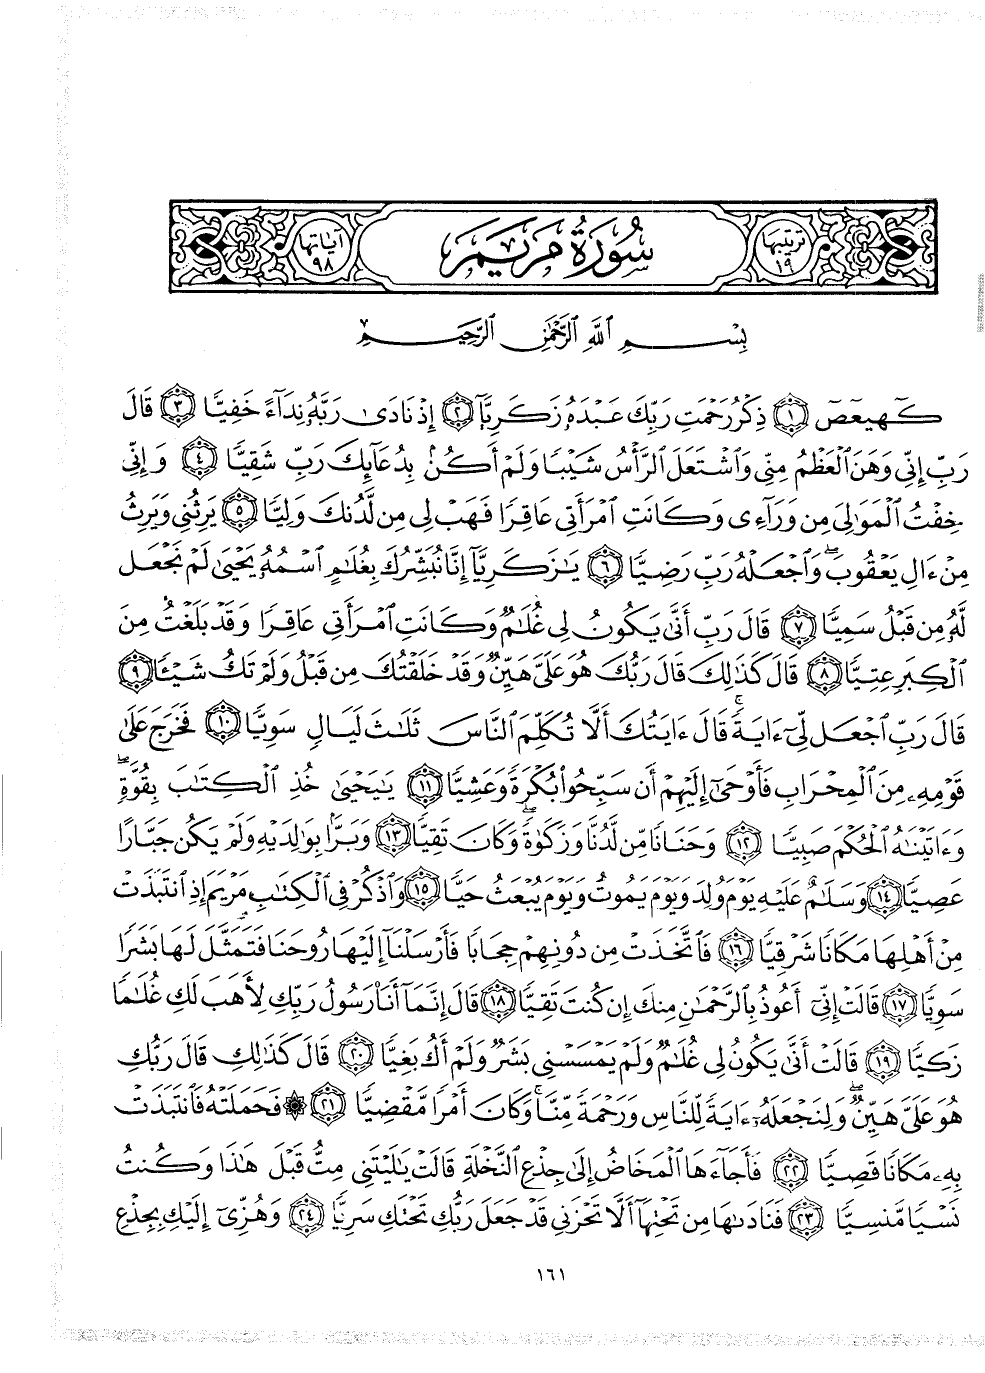 ترتيبها ١٩ سُورَةُ مَرْيَمَ آياتها ٩٨
بِسْمِ ٱللَّهِ ٱلرَّحْمَٰنِ ٱلرَّحِيمِ
كٓهيعٓصٓ ١ ذِكْرُ رَحْمَتِ رَبِّكَ عَبْدَهُۥ زَكَرِيَّآ ٢ إِذْ نَادَىٰ رَبَّهُۥ نِدَآءً خَفِيًّا ٣ قَالَ
رَبِّ إِنِّى وَهَنَ ٱلْعَظْمُ مِنِّى وَٱشْتَعَلَ ٱلرَّأْسُ شَيْبًا وَلَمْ أَكُنۢ بِدُعَآئِكَ رَبِّ شَقِيًّا ٤ وَإِنِّى
خِفْتُ ٱلْمَوَٰلِىَ مِن وَرَآءِى وَكَانَتِ ٱمْرَأَتِى عَاقِرًا فَهَبْ لِى مِن لَّدُنكَ وَلِيًّا ٥ يَرِثُنِى وَيَرِثُ
مِنْ ءَالِ يَعْقُوبَ ۖ وَٱجْعَلْهُ رَبِّ رَضِيًّا ٦ يَٰزَكَرِيَّآ إِنَّا نُبَشِّرُكَ بِغُلَٰمٍ ٱسْمُهُۥ يَحْيَىٰ لَمْ نَجْعَل
لَّهُۥ مِن قَبْلُ سَمِيًّا ٧ قَالَ رَبِّ أَنَّىٰ يَكُونُ لِى غُلَٰمٌ وَكَانَتِ ٱمْرَأَتِى عَاقِرًا وَقَدْ بَلَغْتُ مِنَ
ٱلْكِبَرِ عِتِيًّا ٨ قَالَ كَذَٰلِكَ قَالَ رَبُّكَ هُوَ عَلَىَّ هَيِّنٌ وَقَدْ خَلَقْتُكَ مِن قَبْلُ وَلَمْ تَكُ شَيْـًٔا ٩
قَالَ رَبِّ ٱجْعَل لِّىٓ ءَايَةً ۚ قَالَ ءَايَتُكَ أَلَّا تُكَلِّمَ ٱلنَّاسَ ثَلَٰثَ لَيَالٍ سَوِيًّا ١٠ فَخَرَجَ عَلَىٰ
قَوْمِهِۦ مِنَ ٱلْمِحْرَابِ فَأَوْحَىٰٓ إِلَيْهِمْ أَن سَبِّحُوا۟ بُكْرَةً وَعَشِيًّا ١١ يَٰيَحْيَىٰ خُذِ ٱلْكِتَٰبَ بِقُوَّةٍ ۖ
وَءَاتَيْنَٰهُ ٱلْحُكْمَ صَبِيًّا ١٢ وَحَنَانًا مِّن لَّدُنَّا وَزَكَوٰةً ۖ وَكَانَ تَقِيًّا ١٣ وَبَرًّۢا بِوَٰلِدَيْهِ وَلَمْ يَكُن جَبَّارًا
عَصِيًّا ١٤ وَسَلَٰمٌ عَلَيْهِ يَوْمَ وُلِدَ وَيَوْمَ يَمُوتُ وَيَوْمَ يُبْعَثُ حَيًّا ١٥ وَٱذْكُرْ فِى ٱلْكِتَٰبِ مَرْيَمَ إِذِ ٱنتَبَذَتْ
مِنْ أَهْلِهَا مَكَانًا شَرْقِيًّا ١٦ فَٱتَّخَذَتْ مِن دُونِهِمْ حِجَابًا فَأَرْسَلْنَآ إِلَيْهَا رُوحَنَا فَتَمَثَّلَ لَهَا بَشَرًا
سَوِيًّا ١٧ قَالَتْ إِنِّىٓ أَعُوذُ بِٱلرَّحْمَٰنِ مِنكَ إِن كُنتَ تَقِيًّا ١٨ قَالَ إِنَّمَآ أَنَا۠ رَسُولُ رَبِّكِ لِأَهَبَ لَكِ غُلَٰمًا
زَكِيًّا ١٩ قَالَتْ أَنَّىٰ يَكُونُ لِى غُلَٰمٌ وَلَمْ يَمْسَسْنِى بَشَرٌ وَلَمْ أَكُ بَغِيًّا ٢٠ قَالَ كَذَٰلِكِ قَالَ رَبُّكِ
هُوَ عَلَىَّ هَيِّنٌ ۖ وَلِنَجْعَلَهُۥٓ ءَايَةً لِّلنَّاسِ وَرَحْمَةً مِّنَّا ۚ وَكَانَ أَمْرًا مَّقْضِيًّا ٢١ ۞ فَحَمَلَتْهُ فَٱنتَبَذَتْ
بِهِۦ مَكَانًا قَصِيًّا ٢٢ فَأَجَآءَهَا ٱلْمَخَاضُ إِلَىٰ جِذْعِ ٱلنَّخْلَةِ قَالَتْ يَٰلَيْتَنِى مِتُّ قَبْلَ هَٰذَا وَكُنتُ
نَسْيًا مَّنسِيًّا ٢٣ فَنَادَىٰهَا مِن تَحْتِهَآ أَلَّا تَحْزَنِى قَدْ جَعَلَ رَبُّكِ تَحْتَكِ سَرِيًّا ٢٤ وَهُزِّىٓ إِلَيْكِ بِجِذْعِ
١٦١